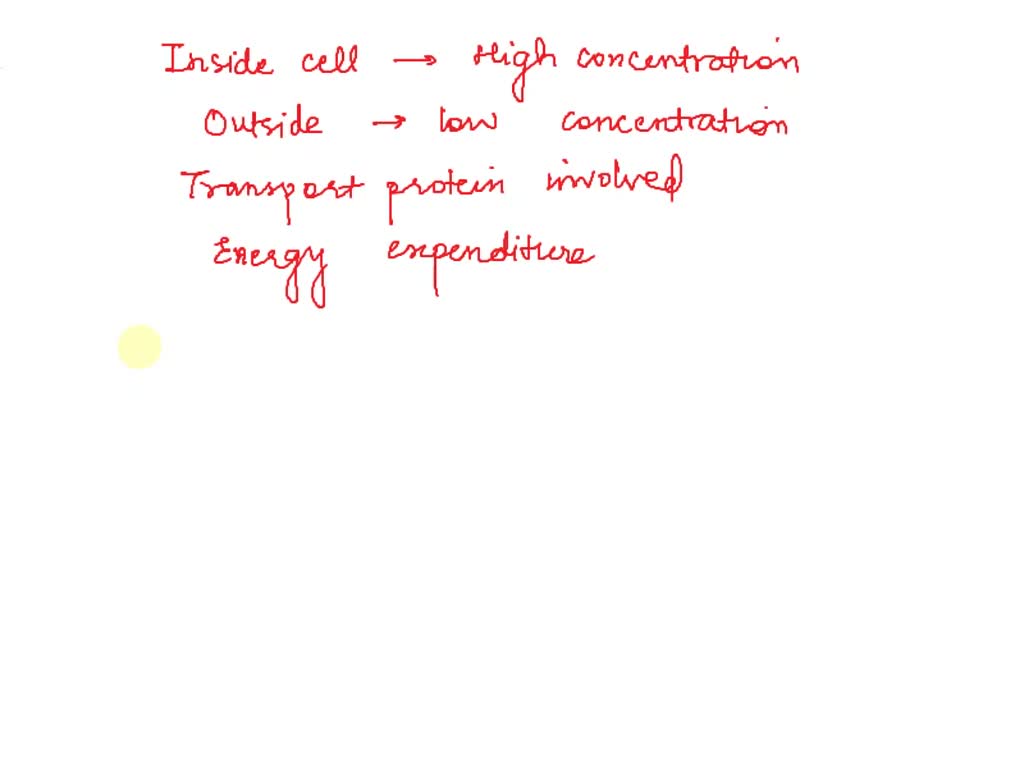 Inside cell → High concentration
Outside → low concentration
Transport protein involved
Energy expenditure